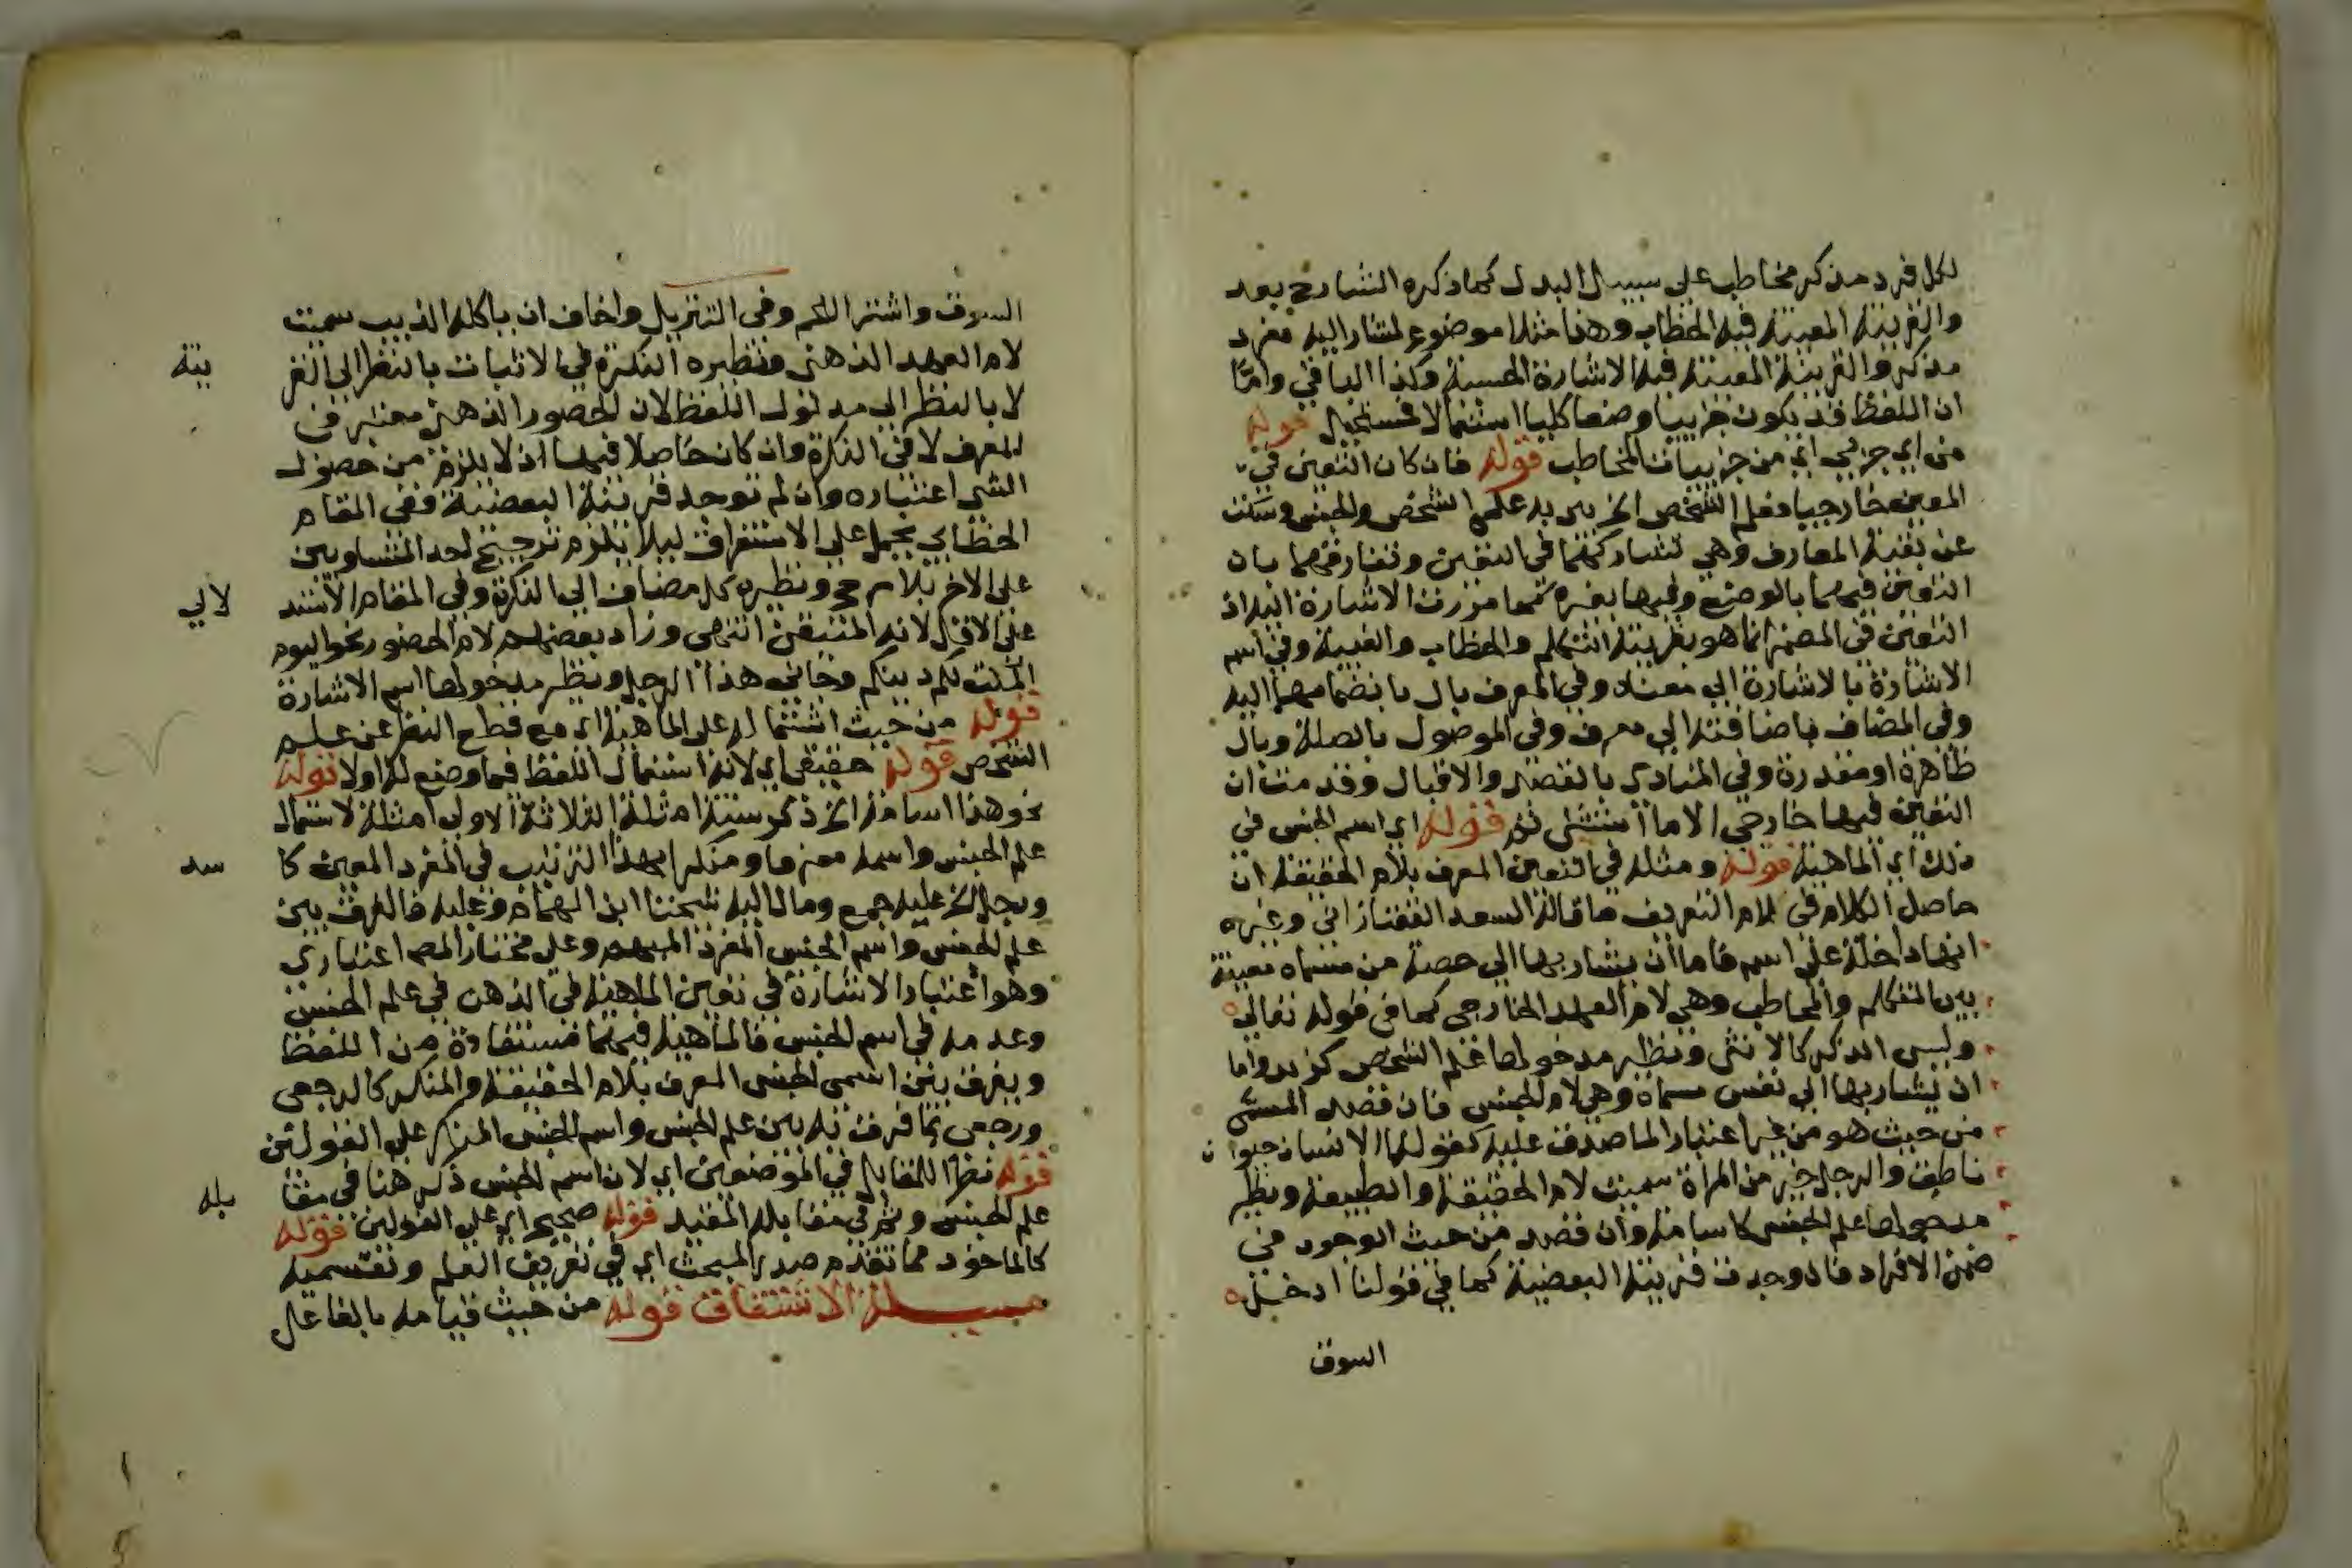 لكل فرد مذكر مخاطب على سبيل البدل كما ذكره الشارح بعد
والقرينة المعينة فيه الخطاب وهذا مثلا موضوع لمشار اليه مفرد
مذكر والقرينة المعينة فيه الاشارة الحسية وكذا الباقي واما
ان اللفظ قد يكون جزييا وضعا كليا استعمالا فمستحيل قوله
من اي جزيي اي من جزييات المخاطب قوله فان كان التعين في
المعين خارجيا فعلم الشخص الخ يريد علمي الشخص والجنس وسكت
عن بقية المعارف وهي تشاركهما في التعين وتفارقهما بان
التعين فيهما بالوضع وفيها بغيره كما مرت الاشارة اليه اذ
التعين في المضمر انما هو بقرينة التكلم والخطاب والغيبة وفي اسم
الاشارة بالاشارة الي معناه وفي المعرف بال بانضمامها اليه
وفي المضاف باضافته الي معرف وفي الموصول بالصلة وبال
ظاهرة او مقدرة وفي المنادى بالقصد والاقبال وقد مت ان
التعين فيها خارجي الا ما استثني ثم قوله اي اسم الجنس في
ذلك اي الماهية قوله ومثله في التعين المعرف بلام الحقيقة ان
حاصل الكلام في لام التعريف ما قاله السعد التفتازاني وغيره
انها داخلة علي اسم فاما ان يشار بها الي حصة من مسماه معينة
بين المتكلم والمخاطب وهي لام العهد الخارجي كما في قوله تعالي
وليس الذكر كالانثى ونظير مدخولها علم الشخص كزيد واما
ان يشار بها الي نفس مسماه وهي لام الجنس فان قصد المسمى
من حيث هو من غير اعتبار لما صدق عليه كقولها الانسان حيوان
ناطق والرجل خير من المراة سميت لام الحقيقة والطبيعة ونظير
مدخولها علم الجنس كاسامة وان قصد من حيث الوجود في
ضمن الافراد فان وجدت قرينة البعضية كما في قولنا ادخل
السوق
السوق واشتر اللحم وفي التنزيل واخاف ان ياكله الذيب سميت
لام العهد الذهني ونظيره النكرة في الاثبات بالنظر الي القر
ينة
لا بالنظر الي مدلول اللفظ لان الحضور الذهني معتبر في
المعرف لا في النكرة وان كان حاصلا فيها اذ لا يلزم من حصول
الشي اعتباره وان لم توجد قرينة البعضية ففي المقام
الخطابي يحمل علي الاستغراق ليلا يلزم ترجيح احد المتساويين
على الاخر بلا مرجح ونظيره كل مضاف الي النكرة وفي المقام الاستد
لالي
على الاقل لانه المتيقن انتهى وزاد بعضهم لام الحضور نحو اليوم
اكملت لكم دينكم وجاني هذا الرجل ونظير مدخولها اسم الاشارة
قوله من حيث اشتماله على الماهية اي مع قطع النظر عن علم
الشخص قوله حقيقي اي لانه استعمال اللفظ فيما وضع له اولا قوله
نحو هذا اسامة الخ ذكر ستة امثلة الثلاثة الاولى امثلة لاستعمال
علم الجنس واسمه معرفا ومنكرا بهذا الترتيب في المفرد المعين كا
سد
عليه جمع ومال اليه شيخنا ابن الهمام وعليه فالفرق بين
علم الجنس واسم الجنس المفرد المبهم وعلى مختار المص اعتباري
وهو اعتبار الاشارة في تعين الماهية في الذهن في علم الجنس
وعدمه في اسم الجنس فالماهية فيهما مستفادة من اللفظ
ويفرق بين اسمى الجنس المعرف بلام الحقيقة والمنكر كالرجعى
ورجعى بما فرق به بين علم الجنس واسم الجنس المنكر علي القولين
قوله نظرا للمقابل في الموضعين اي لان اسم الجنس ذكر هنا في مقا
بله
علم الجنس وثم في مقابله المقيد قوله صحيح اي علي القولين قوله
كالماخوذ مما تقدم صدر المبحث اي في تعريف العلم وتقسميه
مسيلة الاشتقاق قوله من حيث قيامه بالفاعل